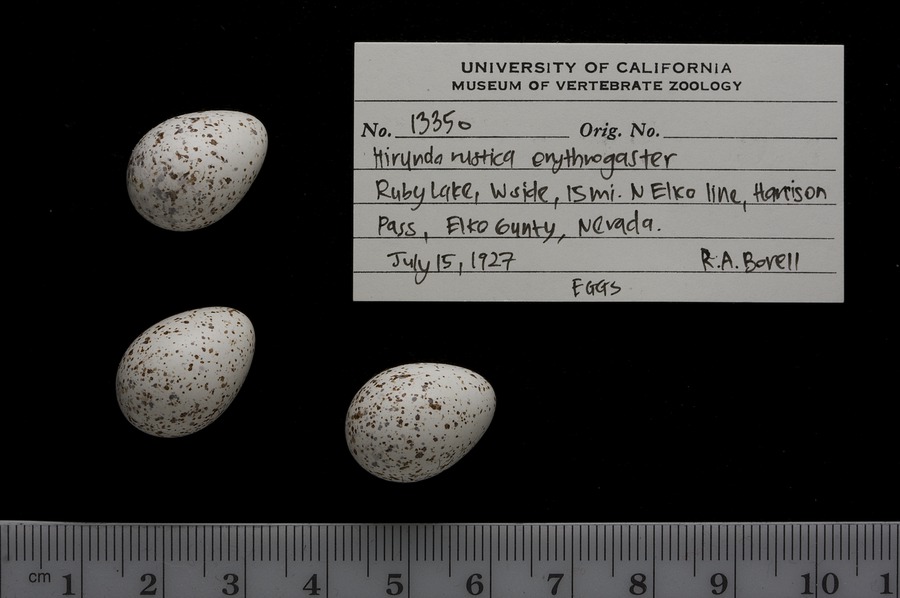 UNIVERSITY OF CALIFORNIA
MUSEUM OF VERTEBRATE ZOOLOGY
No. 13350 Orig. No.
Hirundo rustica erythrogaster
Ruby Lake, W side, 15 mi. N Elko line, Harrison
Pass, Elko County, Nevada.
July 15, 1927 R.A. Borell
EGGS
cm 1 2 3 4 5 6 7 8 9 10 1